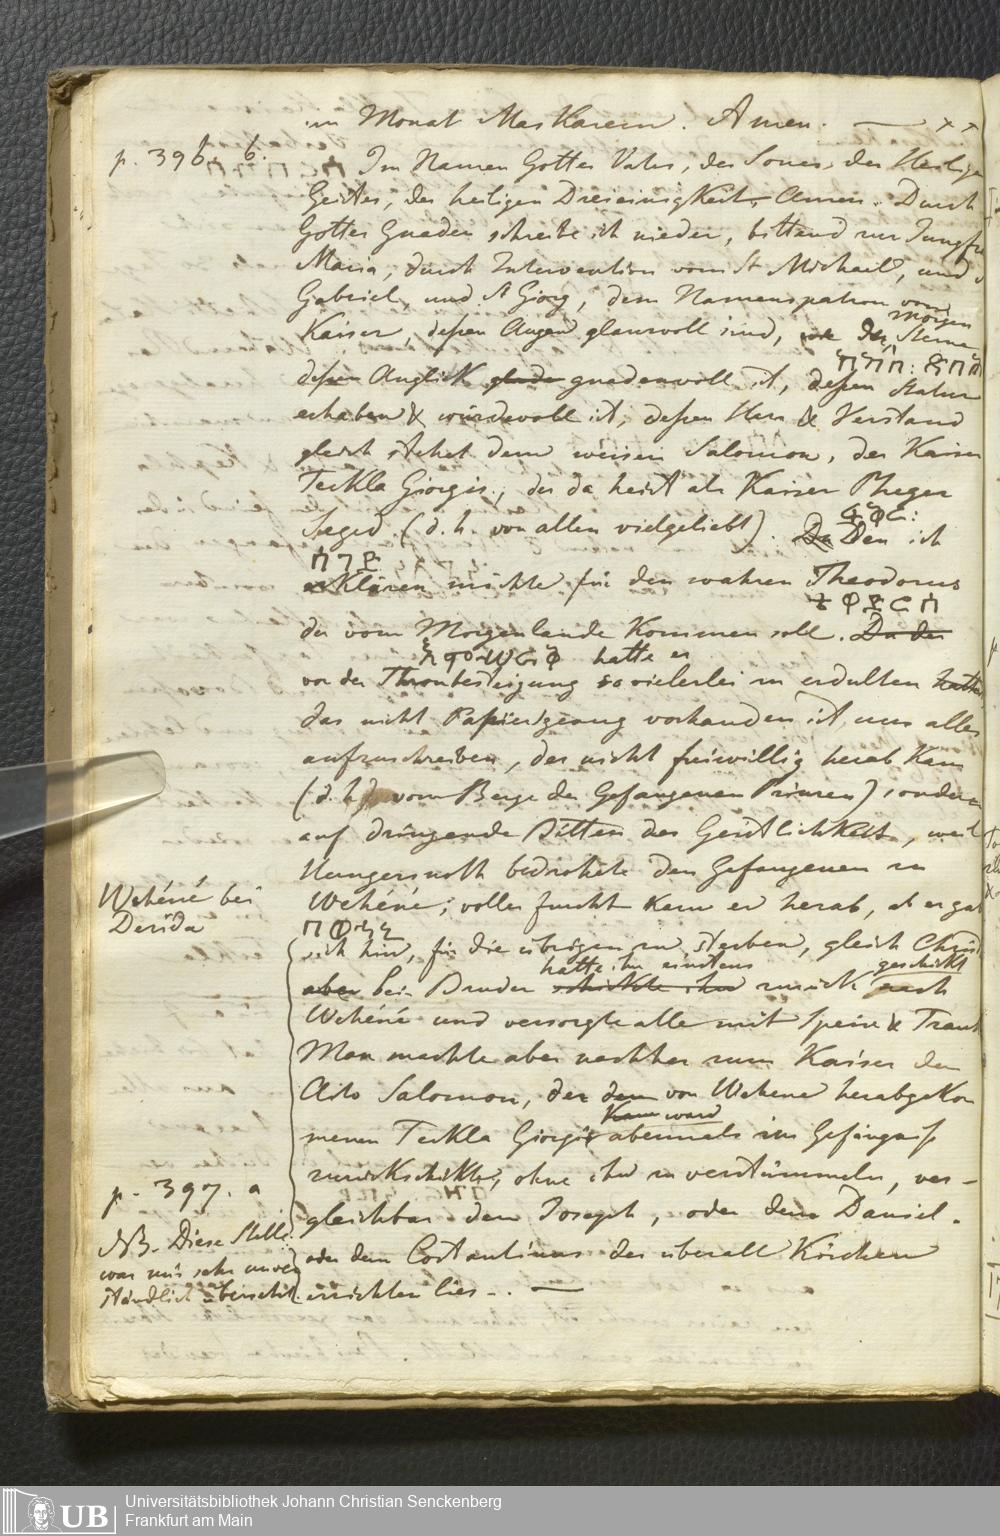 im Monat Maskarem. Amen. — x x
p. 396. b.
Im Namen Gottes Vaters, des Sones, des Heilige
Geistes, der heiligen Dreieinigkeit, Amen. Durch
Gottes Gnaden schreibe ich nieder, bittend zur Jungfr
Maria, durch Intervention vom St Michael, und
Gabriel, und St Giorg, dem Namenspatron vom
Kaiser, dessen Augen glanzvoll sind, wie der Morgen Sterne
dessen Anglick gnadenvoll ist, dessen Statur
erhaben & würdevoll ist, dessen Herz & Verstand
gleich stehet dem weisen Salomon, der Kaiser
Teckla Giorgis, der da heist als Kaiser Pheger
ፍቅር:
Seged (d. h. von allen vielgeliebt). Da Den ich
ሰገድ
erklären möchte für den wahren Theodorus
ቴዎድርስ
der vom Morgenlande kommen soll. Da der
hatte er
vor der Thronbesteigung so vielerlei zu erdulten hatte
das nicht Papier genug vorhanden ist um alles
aufzuschreiben, der nicht freiwillig herab kam
(d. h. vom Berge der Gefangenen Prinzen) sondern
auf dringende Bitten der Geistlichkeit, weil
Hungersnoth bedrohete den Gefangenen zu
Wehéné bei
Derida
Wehéné; voller Furcht kam er herab, ob er gab
ወኅኒ
sich hin, für die übrigen zu sterben, gleich Christ
hatte ihn einstens geschickt
aber sein Bruder schickte ihn zurück nach
Wehéné und versorgte alle mit Speise & Trank
Man machte aber nachher zum Kaiser den
Aito Salomon, der dem von Wehene herabgekom
kam ward
menen Teckla Giorgis abermals im Gefängniss
zurückschickte, ohne ihn zu verstümmeln, ver-
p. 397. a
gleichbar dem Joseph, oder dem Daniel.
NB. Diese Stelle
war mir sehr unver
ständlich
oder dem Costantinus der überall Kirchen
errichten lies. —
Universitätsbibliothek Johann Christian Senckenberg
Frankfurt am Main
UB